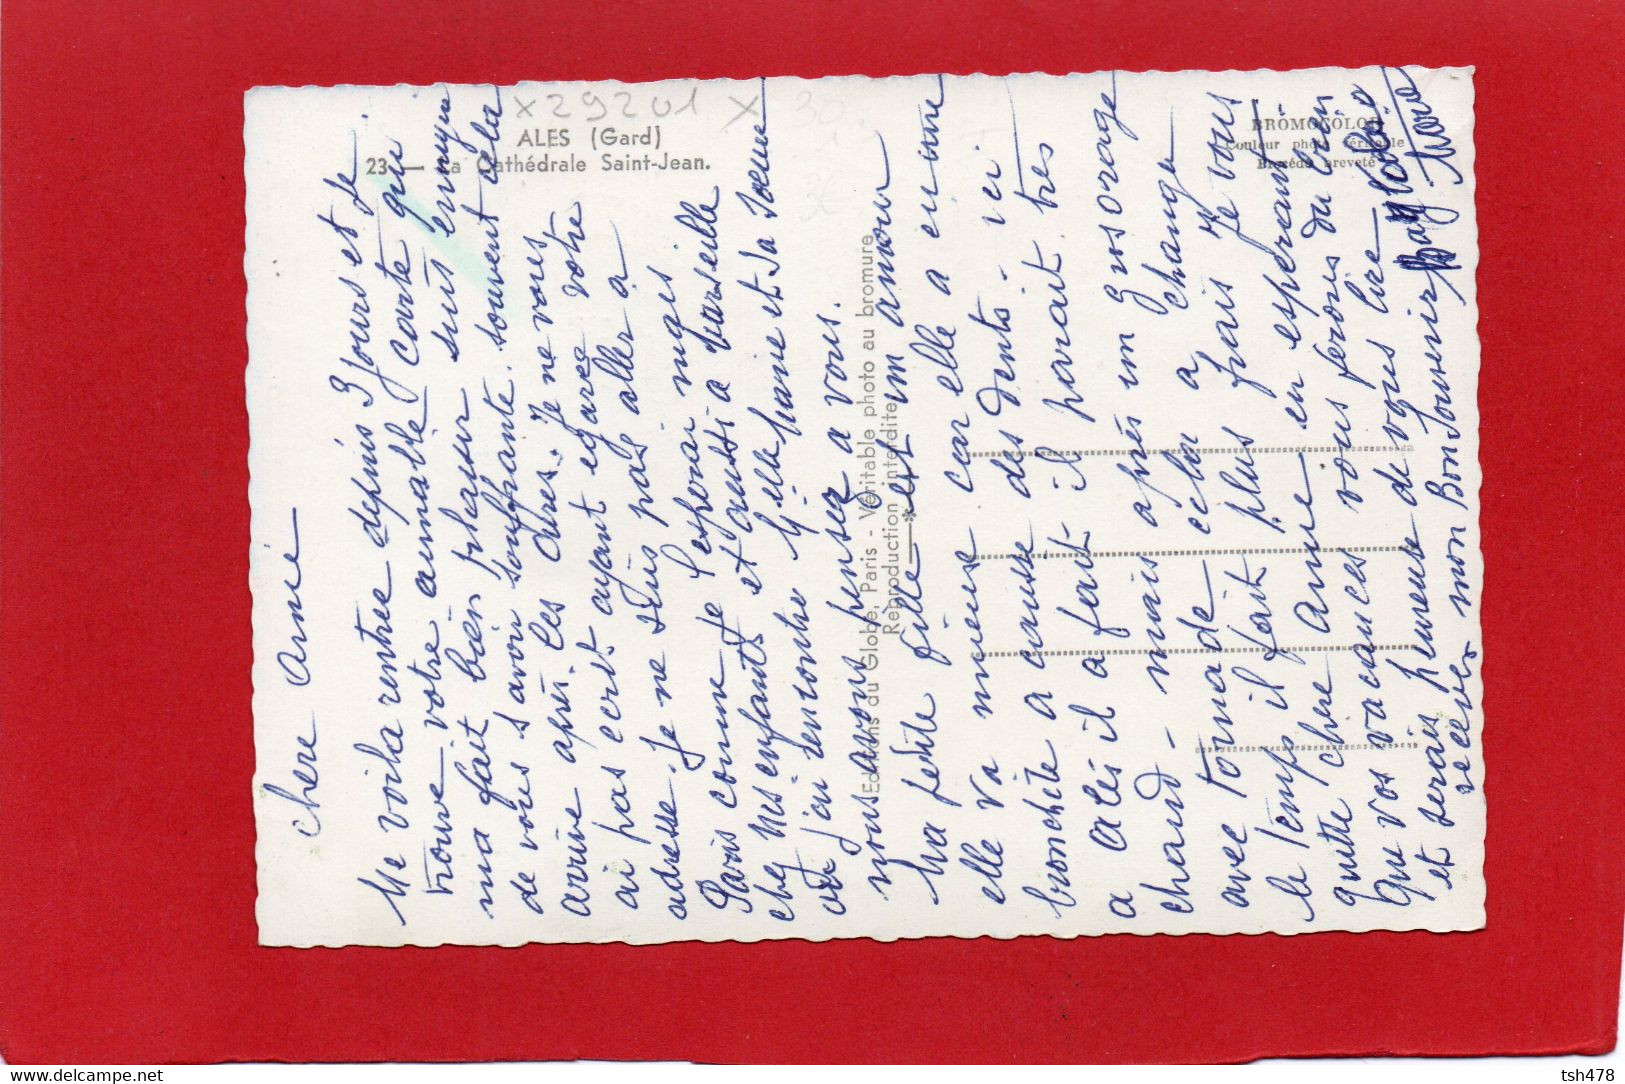 x 29201 x
ALES (Gard)
23 — La Cathédrale Saint-Jean.
BROMOCOLOR
Couleur photo véritable
Procédé breveté
Editions du Globe, Paris - Véritable photo au bromure
Reproduction interdite
chere amie
Me voila rentree depuis 3 jours et je
trouve votre aimable carte qui
ma fait bien plaisir suis ennuyée
de vous savoir souffrante. souvent cela
arrive apres les cures. Je ne vous
ai pas ecrit ayant egaree votre
adresse. Je ne suis pas aller a
Paris comme je l'esperai mais
chez mes enfants et aussi a Marseille
ou j'ai rencontre Melle et sa soeur
nous avons penser a vous.
Ma petite fille est un amour
elle va mieux car elle a eu une
bronchite a cause des dents - ici
a Ales il a fait il parait tres
chaud - mais après un gros orage
avec tornade cela a change
le temp il fait plus frais Je vous
quitte chere amie en esperant
que vos vacances vous ferons du bien
et serais heureuse de vous lire
recever mon Bon Souvenir
tsh478